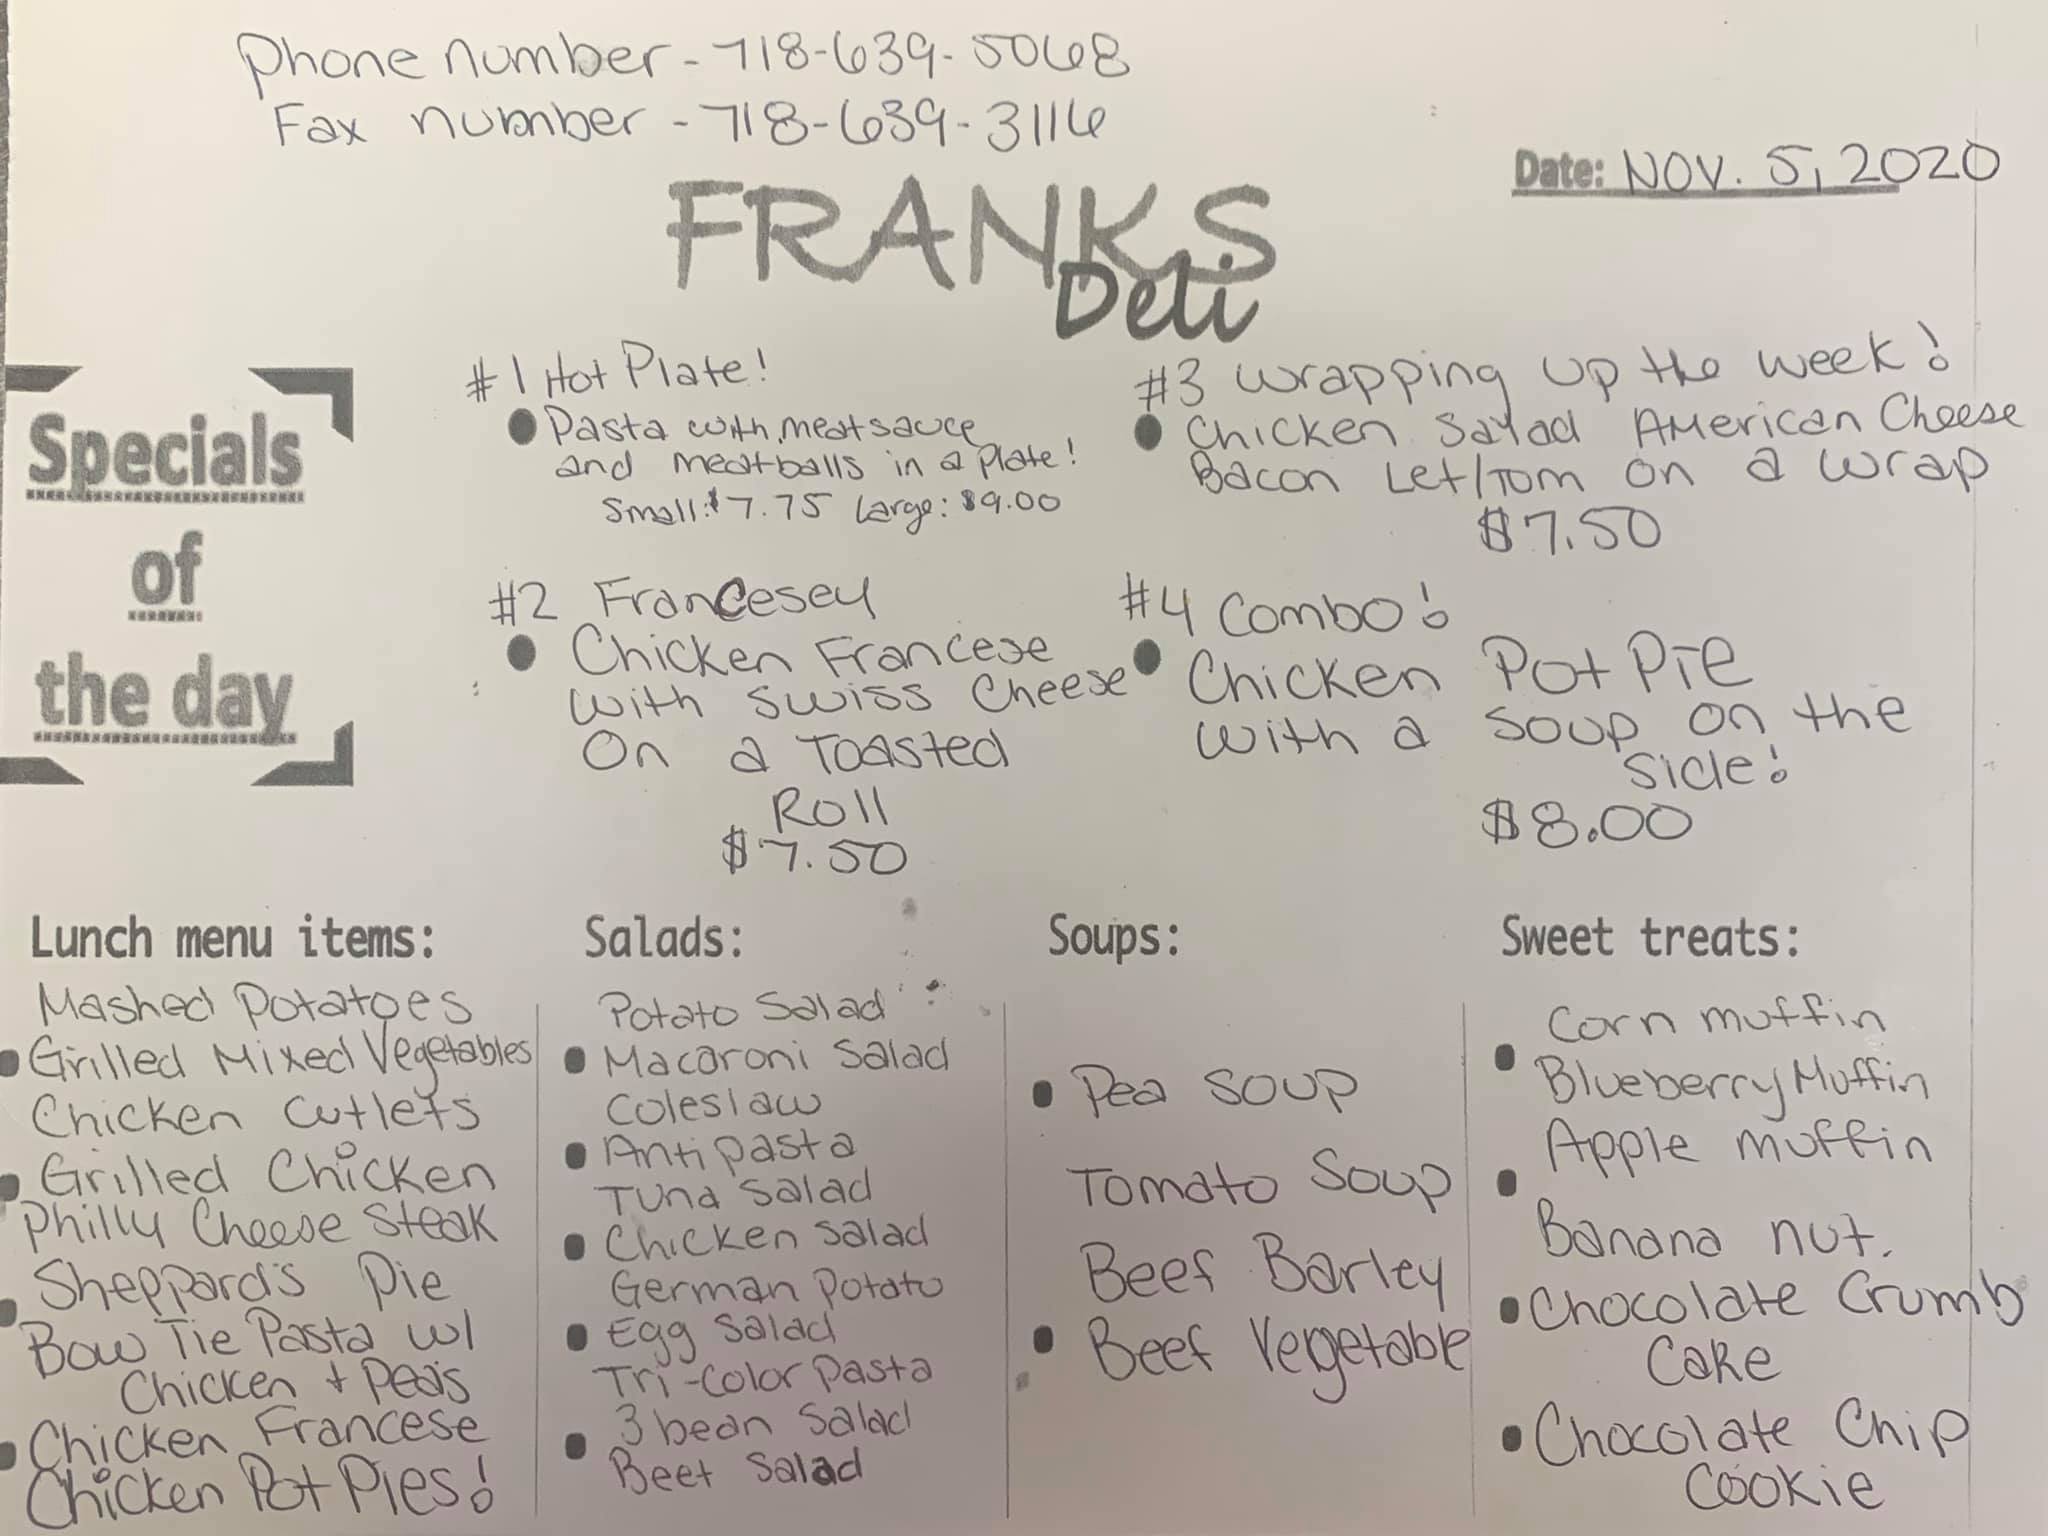 Phone number - 718-639-5068
Fax number - 718-639-3116
Date: NOV. 5, 2020
FRANKS
Deli
Specials
of
the day
#1 Hot Plate!
Pasta with meatsauce
and meatballs in a plate!
Small: $7.75 Large: $9.00
#2 Francesey
Chicken Francese
with swiss cheese
On a Toasted
Roll
$7.50
#3 Wrapping up the week!
Chicken Salad American Cheese
Bacon Let/Tom on a wrap
$7.50
#4 Combo!
Chicken Pot Pie
with a soup on the
side!
$8.00
Lunch menu items:
Mashed Potatoes
Grilled Mixed Vegetables
Chicken cutlets
Grilled Chicken
Philly Cheese Steak
Sheppard's Pie
Bow Tie Pasta w/
Chicken + Peas
Chicken Francese
Chicken Pot Pies!
Salads:
Potato Salad
Macaroni Salad
Coleslaw
Antipasta
Tuna Salad
Chicken Salad
German Potato
Egg Salad
Tri-Color Pasta
3 bean Salad
Beet Salad
Soups:
Pea Soup
Tomato Soup
Beef Barley
Beef Vegetable
Sweet treats:
Corn muffin
Blueberry Muffin
Apple muffin
Banana nut.
Chocolate Crumb
Cake
Chocolate Chip
Cookie